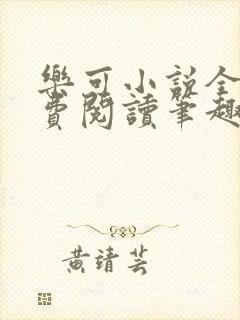 樂可小說全
費閱讀筆趣
黃靖芸